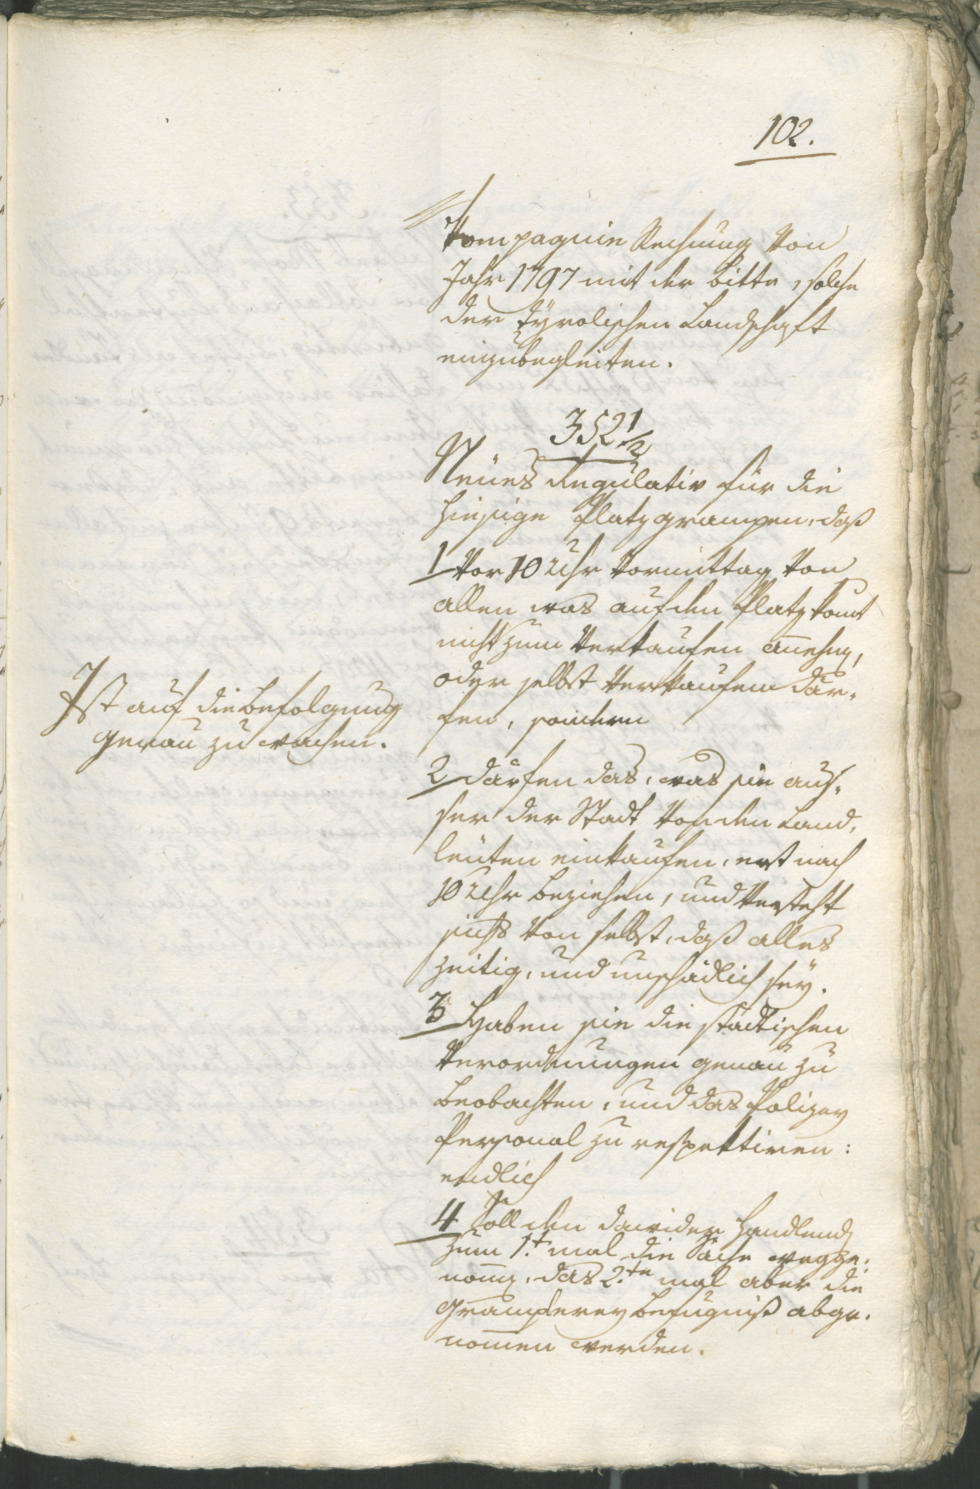 102.
Kompagnie Rechnung Von
Jahr 1797 mit der bitte, solche
der Tyrolischen Landschaft
einzubegleiten.
352 1/2
Neües Regulativ für die
hiesige Platzgrampen, daß
1 Vor 10 Uhr Vormittag Von
allen was auf den Platz komt
nicht zum Verkaufen
oder selbst Verkaufen där-
fen, sondern
Ist auf die befolgung
genau zu wachen.
2 därfen das, was sie aus-
ser der Stadt Von den Land-
leüten einkaufen, erst nach
10 Uhr beziehen, und Versteht
sichs Von selbst, daß alles
zeitig, und unschädlich seÿ.
3 Haben sie die städtischen
Verordnungen genau zu
beobachten, und das Polizey
Personal zu respektiren:
endlich
4 Soll den dawider Handlend
zum 1.t mal die Sache wegge-
nom̄, das 2.te mal aber die
Gramperey befugniß abge-
nom̄en werden.